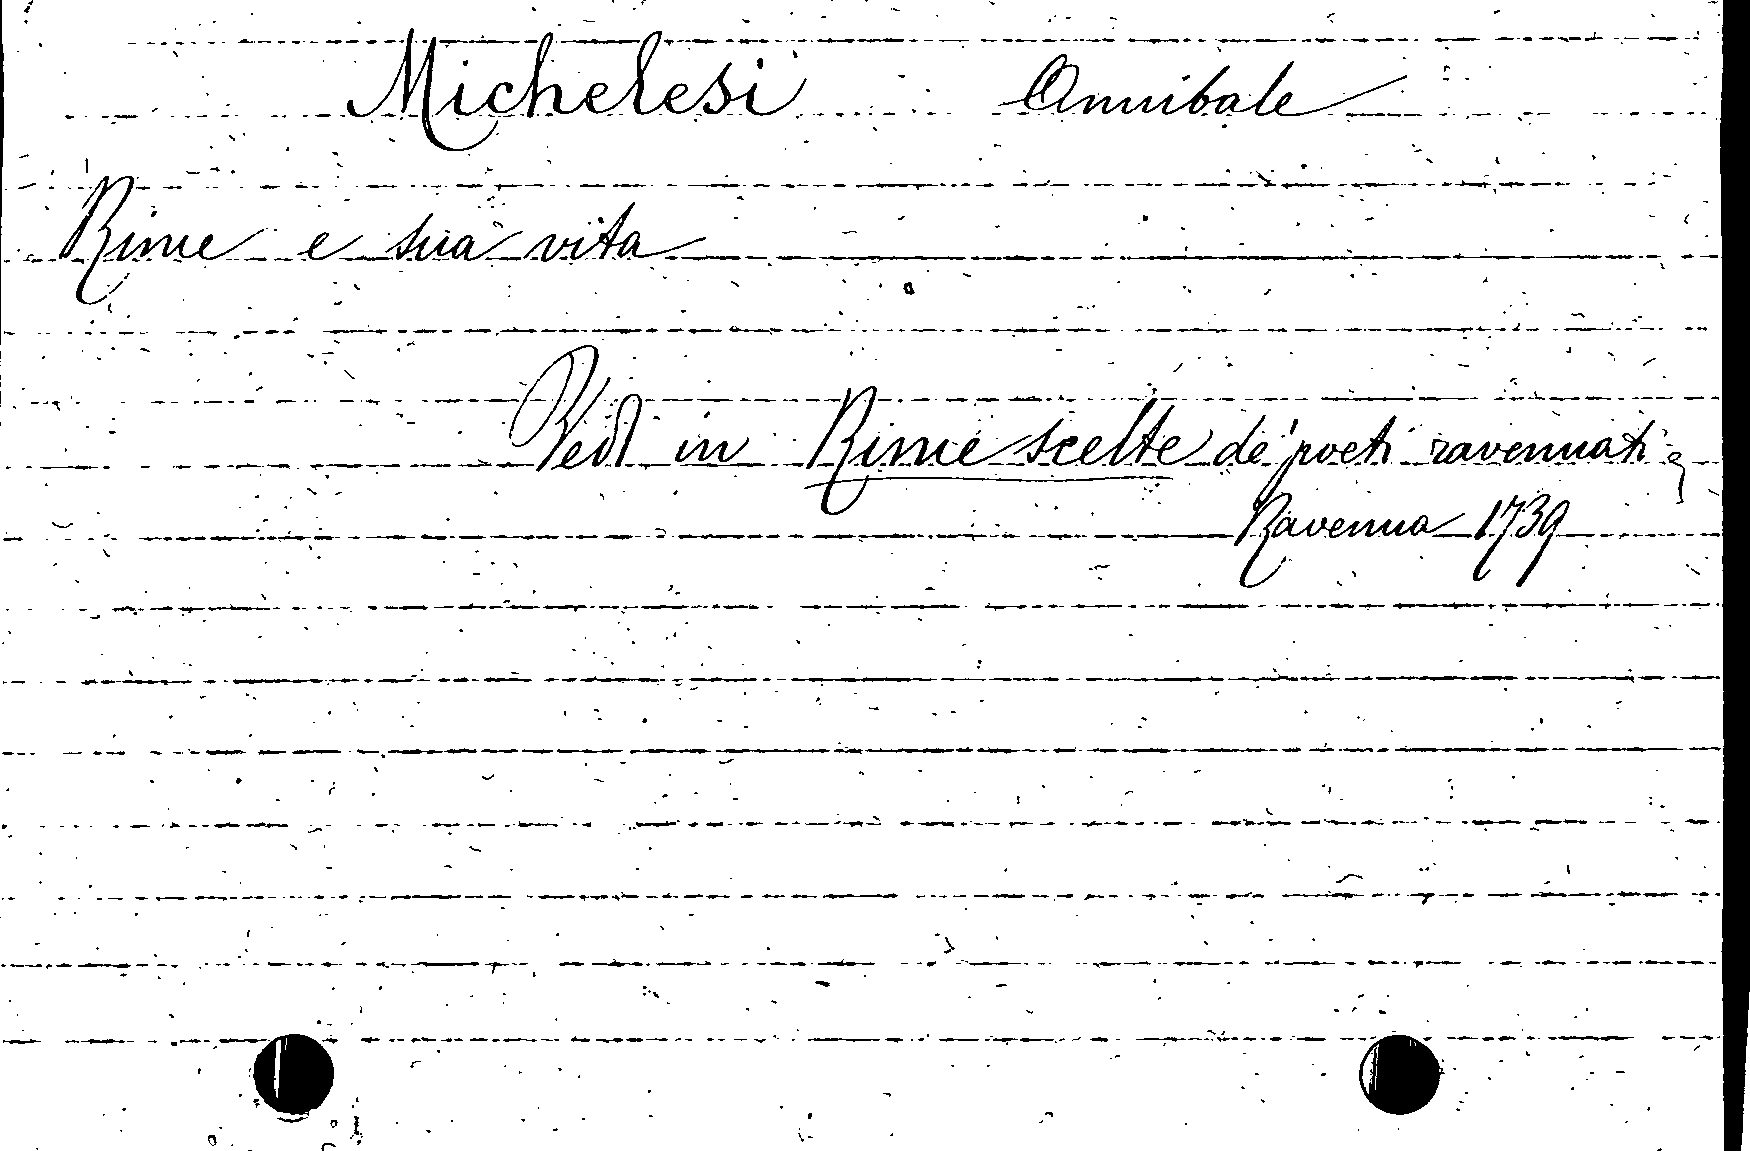 Michelesi Annibale
Rime e sua vita
Vedi in Rime scelte de' poeti ravennati
Ravenna 1739